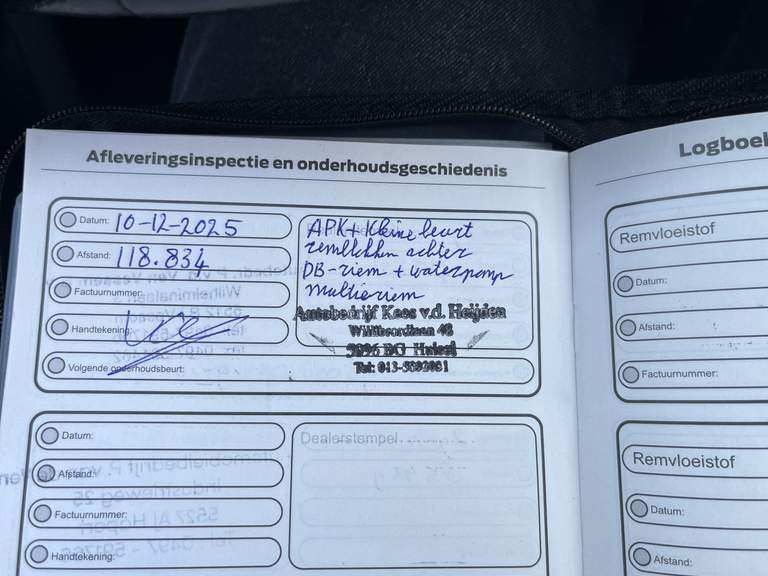 Afleveringsinspectie en onderhoudsgeschiedenis
Datum: 10-12-2025
Afstand: 118.834
Factuurnummer:
Handtekening:
Volgende onderhoudsbeurt:
APK + kleine beurt
remblokken achter
DB-riem + waterpomp
multieriem
Autobedrijf Kees v.d. Heijden
48
5096 BG Hulsel
Tel: 013-5092091
Datum:
Afstand:
Factuurnummer:
Handtekening:
Dealerstempel
Logboek
Remvloeistof
Datum:
Afstand:
Factuurnummer:
Remvloeistof
Datum:
Afstand: